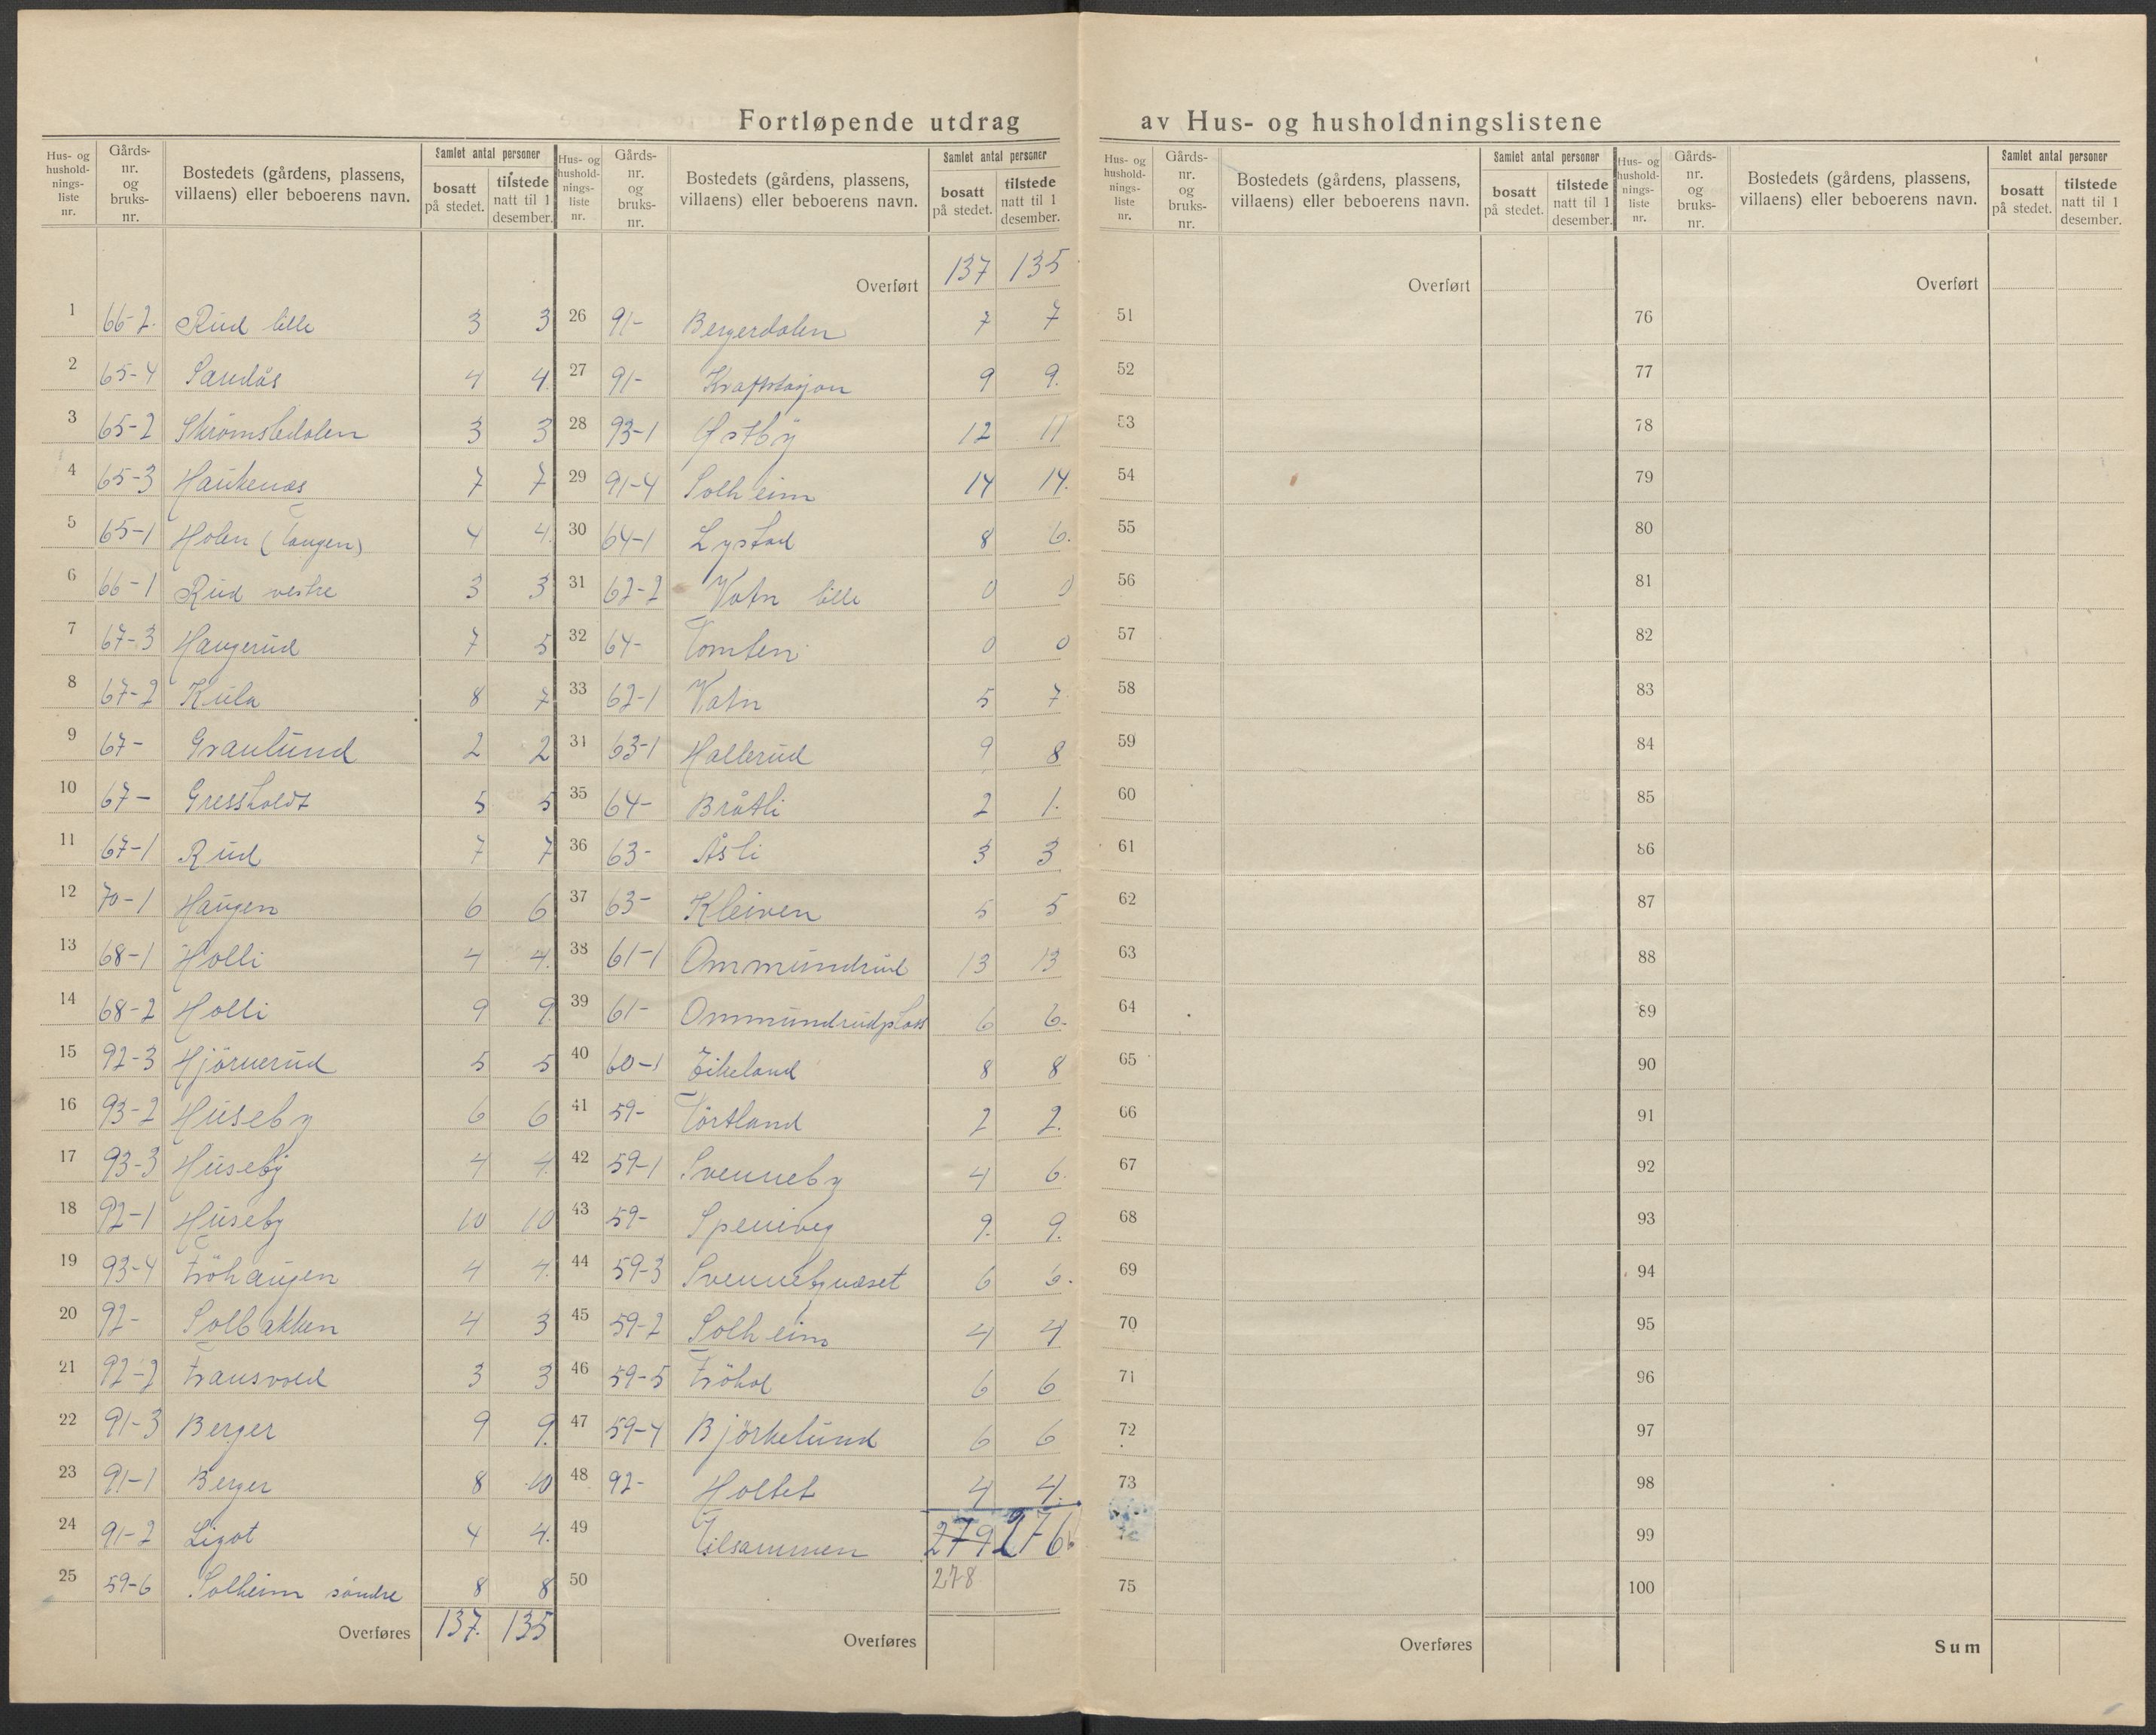 Fortløpende utdrag av Hus- og husholdningslistene
Hus- og husholdningsliste nr. Gårds-nr. og bruks-nr. Bostedets (gårdens, plassens, villaens) eller beboerens navn. Samlet antal personer bosatt på stedet. tilstede natt til 1 desember.
1 66-2. Rud lille 3 3
2 65-4 Sandås 4 4.
3 65-2 Skrömsledalen 3 3
4 65-3 Haukenæs 7 7
5 65-1 Holen (Tangen) 4 4.
6 66-1 Rud vestre 3 3
7 67-3 Haugerud 7 5
8 67-2 Kula 8 7
9 67- Granlund 2 2
10 67- Gressholdt 5 5
11 67-1 Rud 7 7
12 70-1 Haugen 6 6
13 68-1 Holli 4 4.
14 68-2 Holli 9 9.
15 92-3 Hjörnerud 5 5
16 93-2 Huseby 6 6
17 93-3 Huseby 4 4.
18 92-1 Huseby 10 10
19 93-4 Fröhaugen 4 4.
20 92- Solbakken 4 3
21 92-2 Fransvold 3 3
22 91-3 Berger 9 9.
23 91-1 Berger 8 10
24 91-2 Ligot 4 4.
25 59-6 Solheim söndre 8 8
Overføres 137. 135
Hus- og husholdningsliste nr. Gårds-nr. og bruks-nr. Bostedets (gårdens, plassens, villaens) eller beboerens navn. Samlet antal personer bosatt på stedet. tilstede natt til 1 desember.
Overført 137 135
26 91- Bergerdalen 7 7
27 91- Kraftstasjon 9 9.
28 93-1 Østby 12 11
29 91-4 Solheim 14 14.
30 64-1 Lystad 8 6.
31 62-2 Vatn lille 0 0
32 64- Tomten 0 0
33 62-1 Vatn 5 7
34 63-1 Hallerud 9 8
35 64- Bråtli 2 1.
36 63- Åsli 3 3
37 63- Kleiven 5 5
38 61-1 Ommundrud 13 13
39 61- Ommundrudplass 6 6.
40 60-1 Eikeland 8 8
41 59- Törtland 2 2.
42 59-1 Svenneby 4 6.
43 59- Speniveg 9. 9.
44 59-3 Svennebynæset 6 6.
45 59-2 Solheim 4 4
46 59-5 Fröhol 6 6
47 59-4 Björkelund 6 6
48 92- Holtet 4 4.
49 Tilsammen 279 276.
50 278
Overføres
Hus- og husholdningsliste nr. Gårds-nr. og bruks-nr. Bostedets (gårdens, plassens, villaens) eller beboerens navn. Samlet antal personer bosatt på stedet. tilstede natt til 1 desember.
Overført
51
52
53
54
55
56
57
58
59
60
61
62
63
64
65
66
67
68
69
70
71
72
73
75
Overføres
Hus- og husholdningsliste nr. Gårds-nr. og bruks-nr. Bostedets (gårdens, plassens, villaens) eller beboerens navn. Samlet antal personer bosatt på stedet. tilstede natt til 1 desember.
Overført
76
77
78
79
80
81
82
83
84
85
86
87
88
89
90
91
92
93
94
95
96
97
98
99
100
Sum